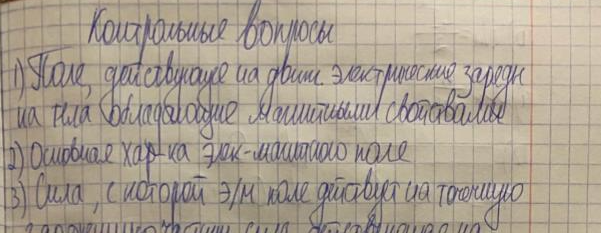 Контрольные вопросы
1) Поле, действующее на движ. электрические заряды
на тела обладающие магнитными свойствами
2) Основная хар-ка элек-магнитного поле
3) Сила, с которой э/м поле действует на точечную
заряженную частицу сила действующая на